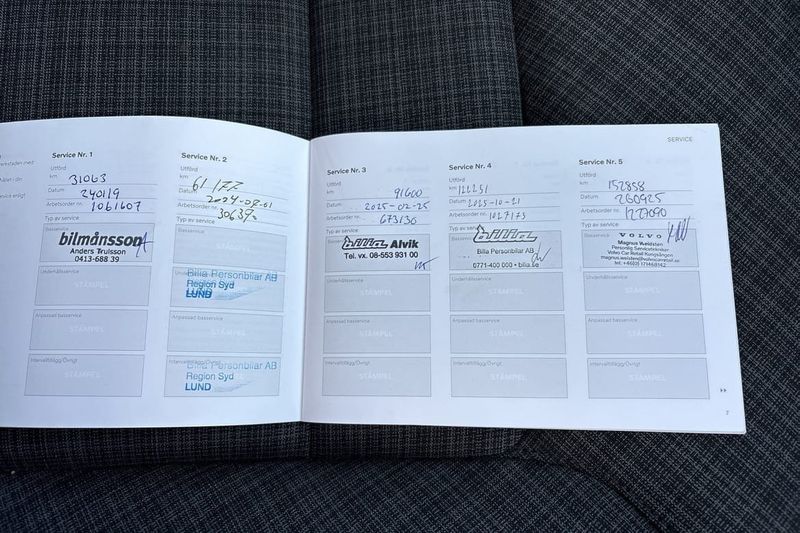 SERVICE
Service Nr. 1
Utförd
km 31063
Datum 240119
Arbetsorder nr. 1061607
Typ av service
bilmånsson
Anders Trulsson
0413-688 39
Underhållsservice
STÄMPEL
Anpassad basservice
STÄMPEL
Intervalltillägg/Övrigt
STÄMPEL
Service Nr. 2
Utförd
km 61 177
Datum
Arbetsorder nr.
Typ av service
Basservice
STÄMPEL
Underhållsservice
Bilia Personbilar AB
Region Syd
LUND
Anpassad basservice
STÄMPEL
Intervalltillägg/Övrigt
Bilia Personbilar AB
Region Syd
LUND
Service Nr. 3
Utförd
km 91600
Datum 2025-02-25
Arbetsorder nr. 673130
Typ av service
Bilia Alvik
Tel. vx. 08-553 931 00
Underhållsservice
STÄMPEL
Anpassad basservice
STÄMPEL
Intervalltillägg/Övrigt
STÄMPEL
Service Nr. 4
Utförd
km 122231
Datum 2025-10-21
Arbetsorder nr. 1027173
Typ av service
Bilia
Bilia Personbilar AB
0771-400 000 • bilia.se
Underhållsservice
STÄMPEL
Anpassad basservice
STÄMPEL
Intervalltillägg/Övrigt
STÄMPEL
Service Nr. 5
Utförd
km 152858
Datum
Arbetsorder nr.
Typ av service
VOLVO
Magnus Weidsten
Personlig Servicetekniker
Volvo Car Retail Kungsängen
Underhållsservice
STÄMPEL
Anpassad basservice
STÄMPEL
Intervalltillägg/Övrigt
STÄMPEL
7